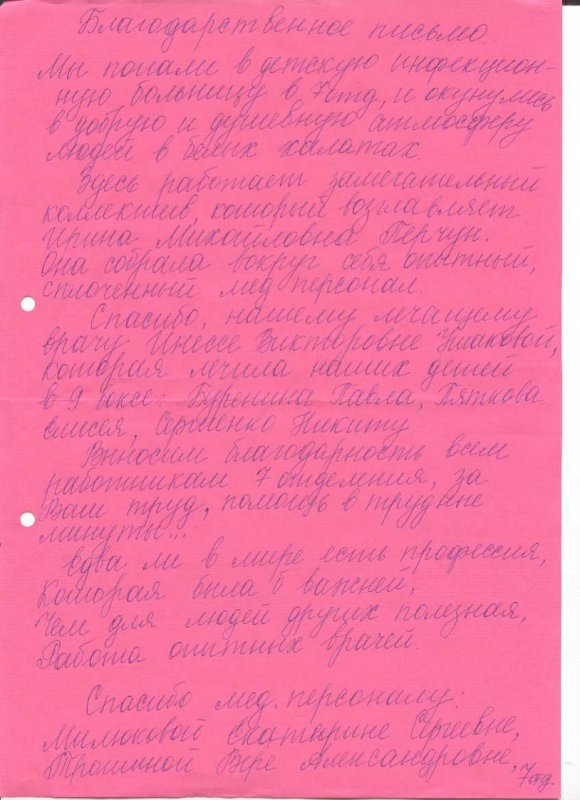 Благодарственное письмо.
Мы попали в детскую инфекцион-
ную больницу в 7 отд, и окунулись
в добрую и душевную атмосферу
людей в белых халатах.
Здесь работает замечательный
коллектив, который возглавляет
Ирина Михайловна Перчун.
Она собрала вокруг себя опытный,
сплоченный мед персонал.
Спасибо, нашему лечащему
врачу Инессе Викторовне Ушаковой,
которая лечила наших детей
в 9 боксе: Буренина Павла, Пяткова
Елисея, Сергиенко Никиту
Выносим благодарность всем
работникам 7 отделения, за
Ваш труд, помощь в трудные
минуты...
Едва ли в мире есть профессия,
Которая была б важней,
Чем для людей других полезная,
Работа опытных врачей.
Спасибо мед. персоналу:
Милюковой Екатерине Сергеевне,
Трошиной Вере Александровне,
7 отд.